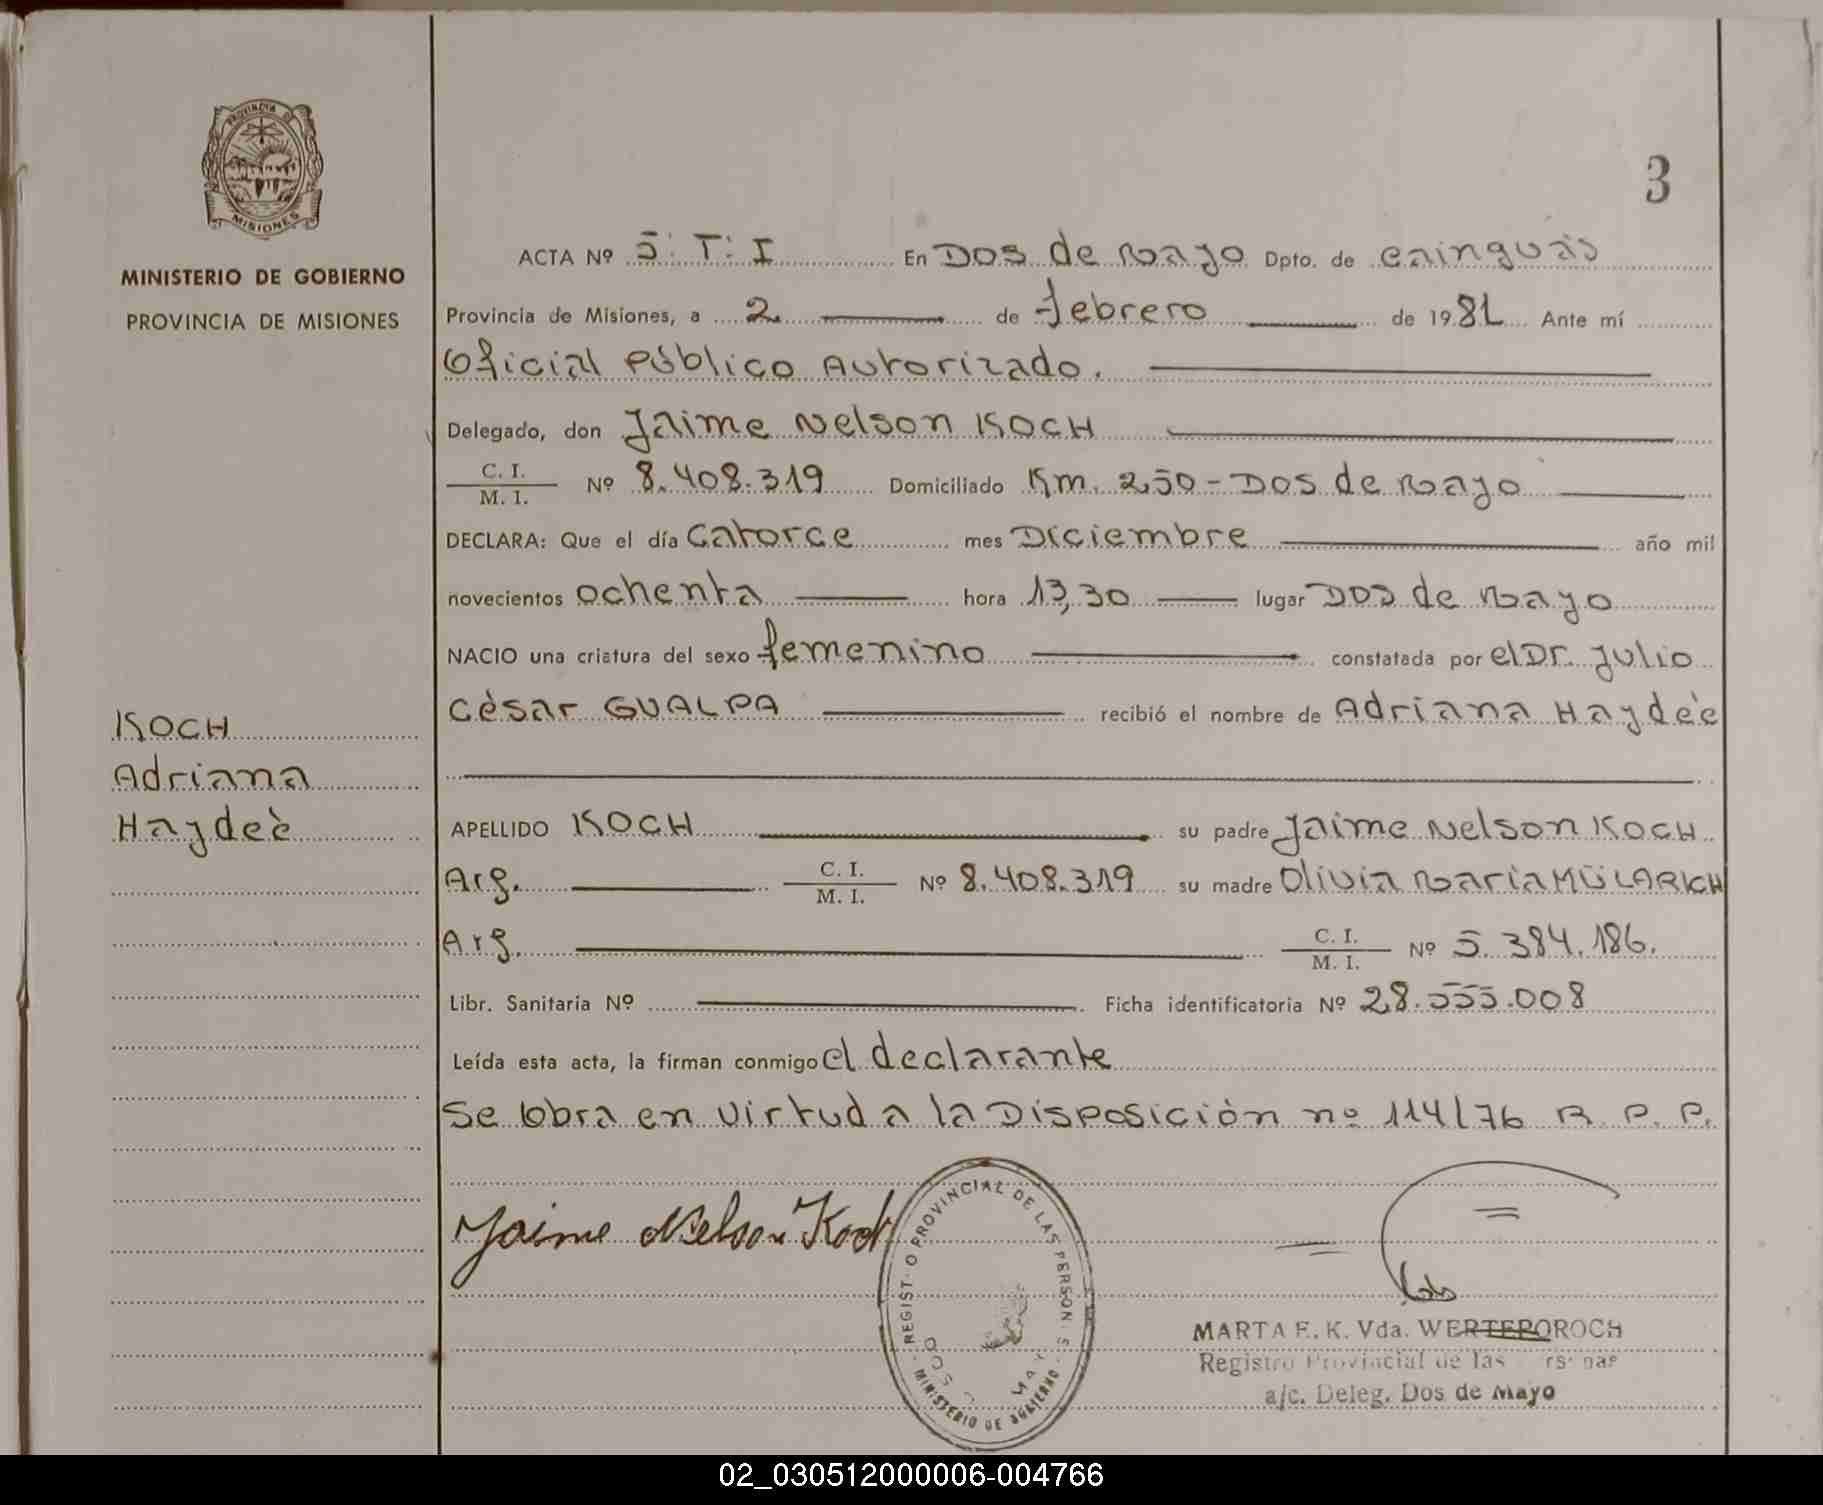 PROVINCIA DE
MISIONES
MINISTERIO DE GOBIERNO
PROVINCIA DE MISIONES
3
ACTA Nº 5: T: I En Dos de Mayo Dpto. de Cainguás
Provincia de Misiones, a 2 de febrero de 1981 Ante mí
Oficial Público Autorizado.
Delegado, don Jaime Nelson KOCH
C. I.
M. I. Nº 8.408.319 Domiciliado Km. 250 - Dos de Mayo
DECLARA: Que el día Catorce mes Diciembre año mil
novecientos ochenta hora 13,30 lugar Dos de Mayo
NACIO una criatura del sexo femenino constatada por el Dr. Julio
Cèsar GUALPA recibió el nombre de Adriana Haydeè
KOCH
Adriana
Haydeè
APELLIDO KOCH su padre Jaime Nelson KOCH
Arg. C. I.
M. I. Nº 8.408.319 su madre Olivia Maria MÜLARICH
Arg. C. I.
M. I. Nº 5.384.186.
Libr. Sanitaria Nº Ficha identificatoria Nº 28.555.008
Leída esta acta, la firman conmigo el declarante
Se Obra en Virtud a la Disposiciòn nº 114/76 R. P. P.
Jaime Nelson Koch
PROVINCIAL DE LAS
MINISTERIO DE
MARTA E. K. Vda. WERTEPOROCH
Registro Provincial de las
a/c. Deleg. Dos de Mayo
02_030512000006-004766